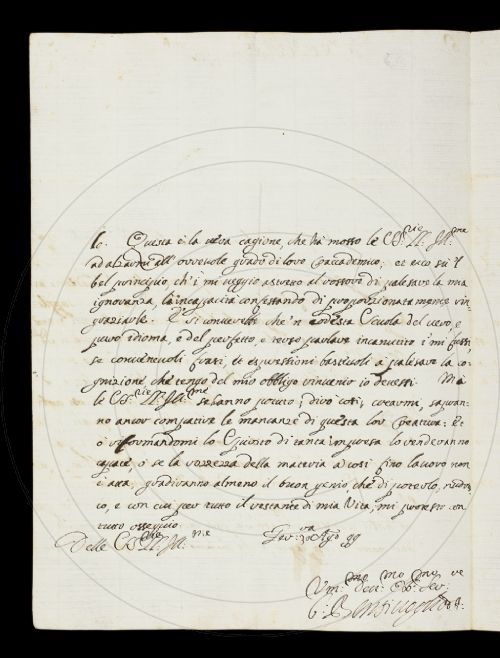 lo. Questa è la vera cagione, che hà mosso le SS:rie Ill:me
ad alzarmi all'onorevole grado di loro accademico; et ecco su'l
bel principio, ch'i mi veggio astretto al rossore di palesare la mia
ignoranza, la incapacità confessando di proporzionatamente rin-
graziarle. E si converrebbe che'n codesta Scuola del vero, e
puro idioma, e del perfetto, e retto parlare
se convenevoli frasi, et espressioni bastevoli a palesare la co-
gnizione che tengo del mio obbligo rinvenir io dovessi. Mà
le SS:rie Ill:me se hanno potuto, dirò così, crearmi, sapran-
no ancor compatire le mancanze di questa lor Creatura: Et
o riformandomi lo Spirito di tanta impresa lo renderanno
capace, ò se la rozzezza della materia a così fino lavoro non
è atta, gradiranno almeno il buon genio che di poterlo,
e con cui per tutto il restante di mia Vita, mi protesto con
tutto ossequio
Delle SS:rie Ill:me
Ago 99
Um:mo Dev:mo Obb:mo Ser:re
Bentivoglio